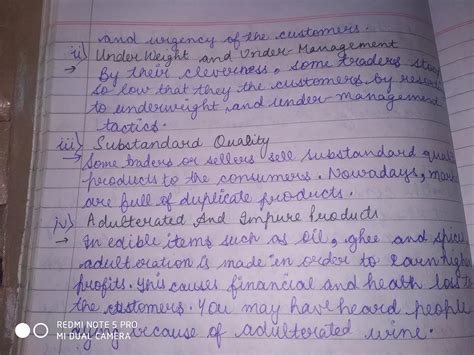 and urgency of the customers.
ii) Under Weight and Under-Management
→ By their cleverness, some traders
so low that they the customers by
to underweight and under-management
tactics.
iii) Substandard Quality
→ Some traders or sellers sell substandard
products to the consumers. Nowadays,
are full of duplicate products.
iv) Adulterated And Impure Products
→ In edible items such as oil, ghee and
adulteration is made in order to earn
profits. This causes financial and health to
the customers. You may have heard people
because of adulterated wine.
REDMI NOTE 5 PRO
MI DUAL CAMERA